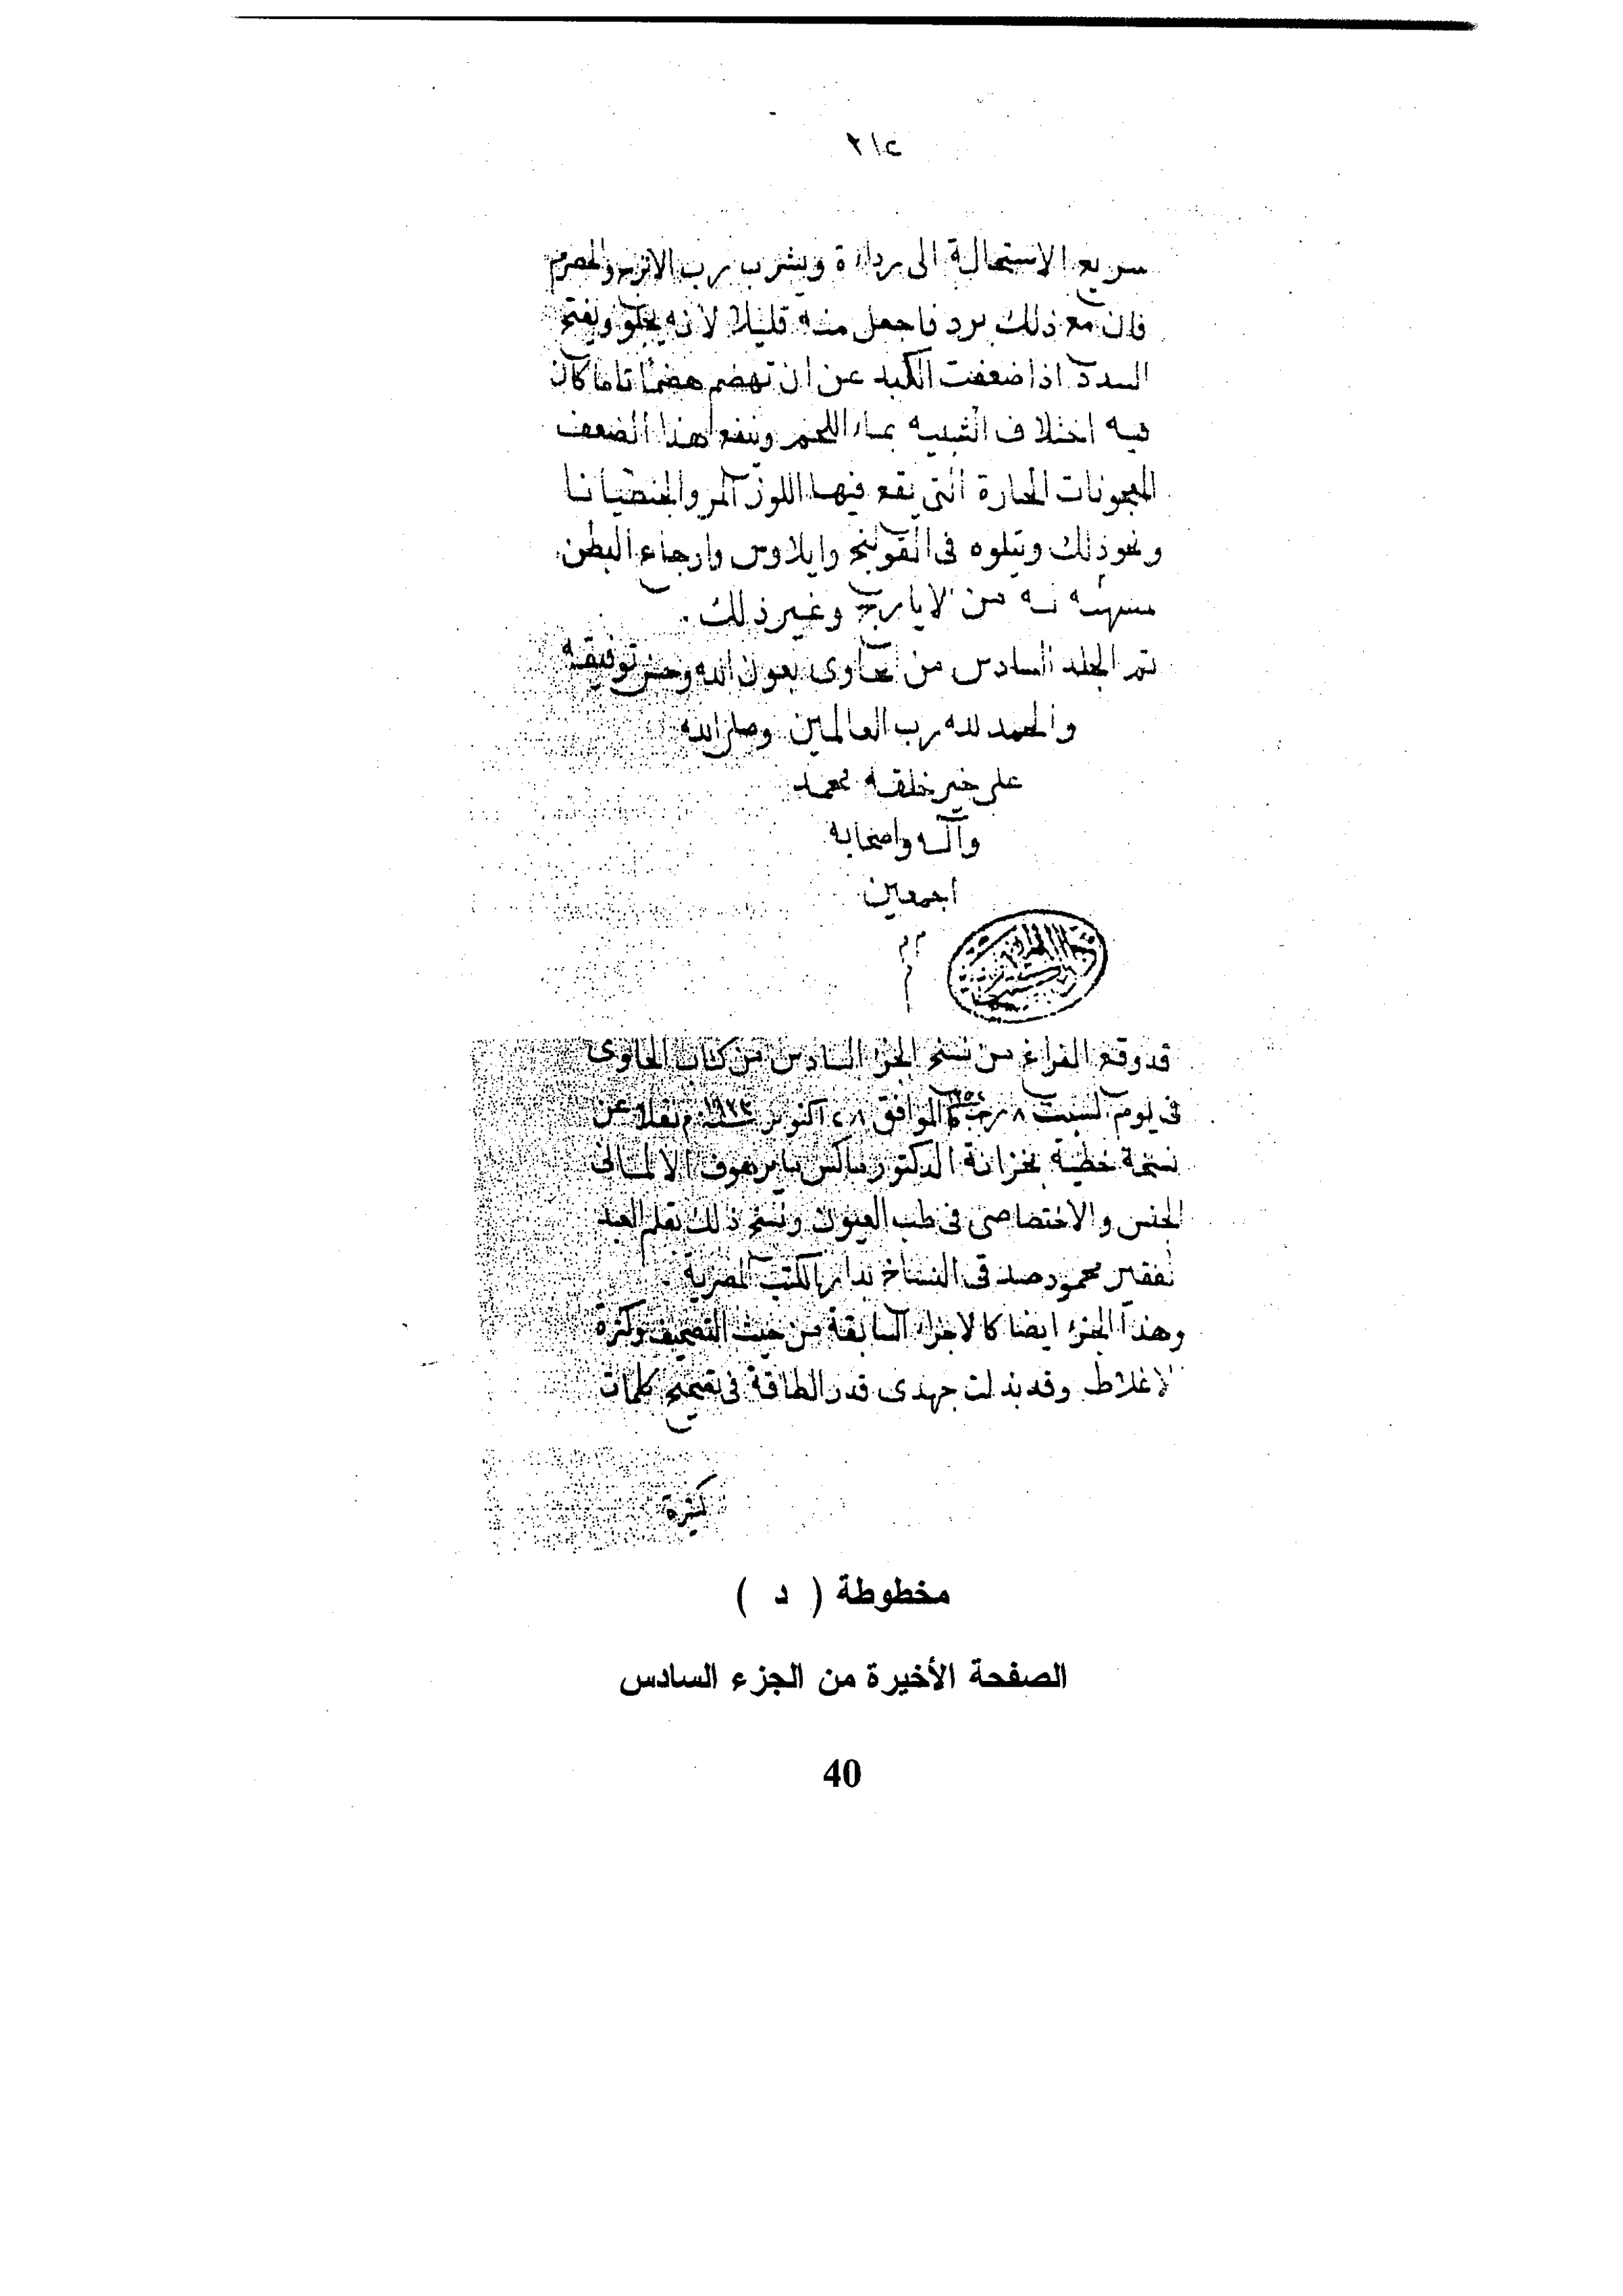 ٢١٤
سريع الاستحالة الى رداءة ويشرب رب الاترج والحصرم
فان مع ذلك برد فاجعل منه قليلا لانه يجلو ويفتح
السدد اذا ضعفت الكبد عن ان تهضم هضما تاما كان
فيه اختلاف الشبيه بماء اللحم وينفع هذا الضعف
المعجونات الحارة التى يقع فيها اللوز المر والجنطيانا
ونحو ذلك ويتلوه فى القولنج وايلاوس واوجاع البطن
من الايارج وغير ذلك .
تم الجلد السادس من الحاوى بعون الله وحسن توفيقه
والحمد لله رب العالمين وصلى الله
على خير خلقه محمد
وآله واصحابه
اجمعين
قد وقع الفراغ من نسخ الجزء السادس من كتاب الحاوى
فى يوم السبت ٨ رجب الموافق ٢٨ اكتوبر سنة ١٩٣٣ م نقلا عن
نسخة خطية بخزانة الدكتور ماكس مايرهوف الالمانى
الجنس والاختصاصى فى طب العيون ونسخ ذلك بقلم العبد
الفقير محمود صدقى النساخ بدار الكتب المصرية .
وهذا الجزء ايضا كالاجزاء السابقة من حيث التصحيف وكثرة
الاغلاط وقد بذلت جهدى قدر الطاقة فى تصحيح كلمات
كثيرة
مخطوطة ( د )
الصفحة الأخيرة من الجزء السادس
40